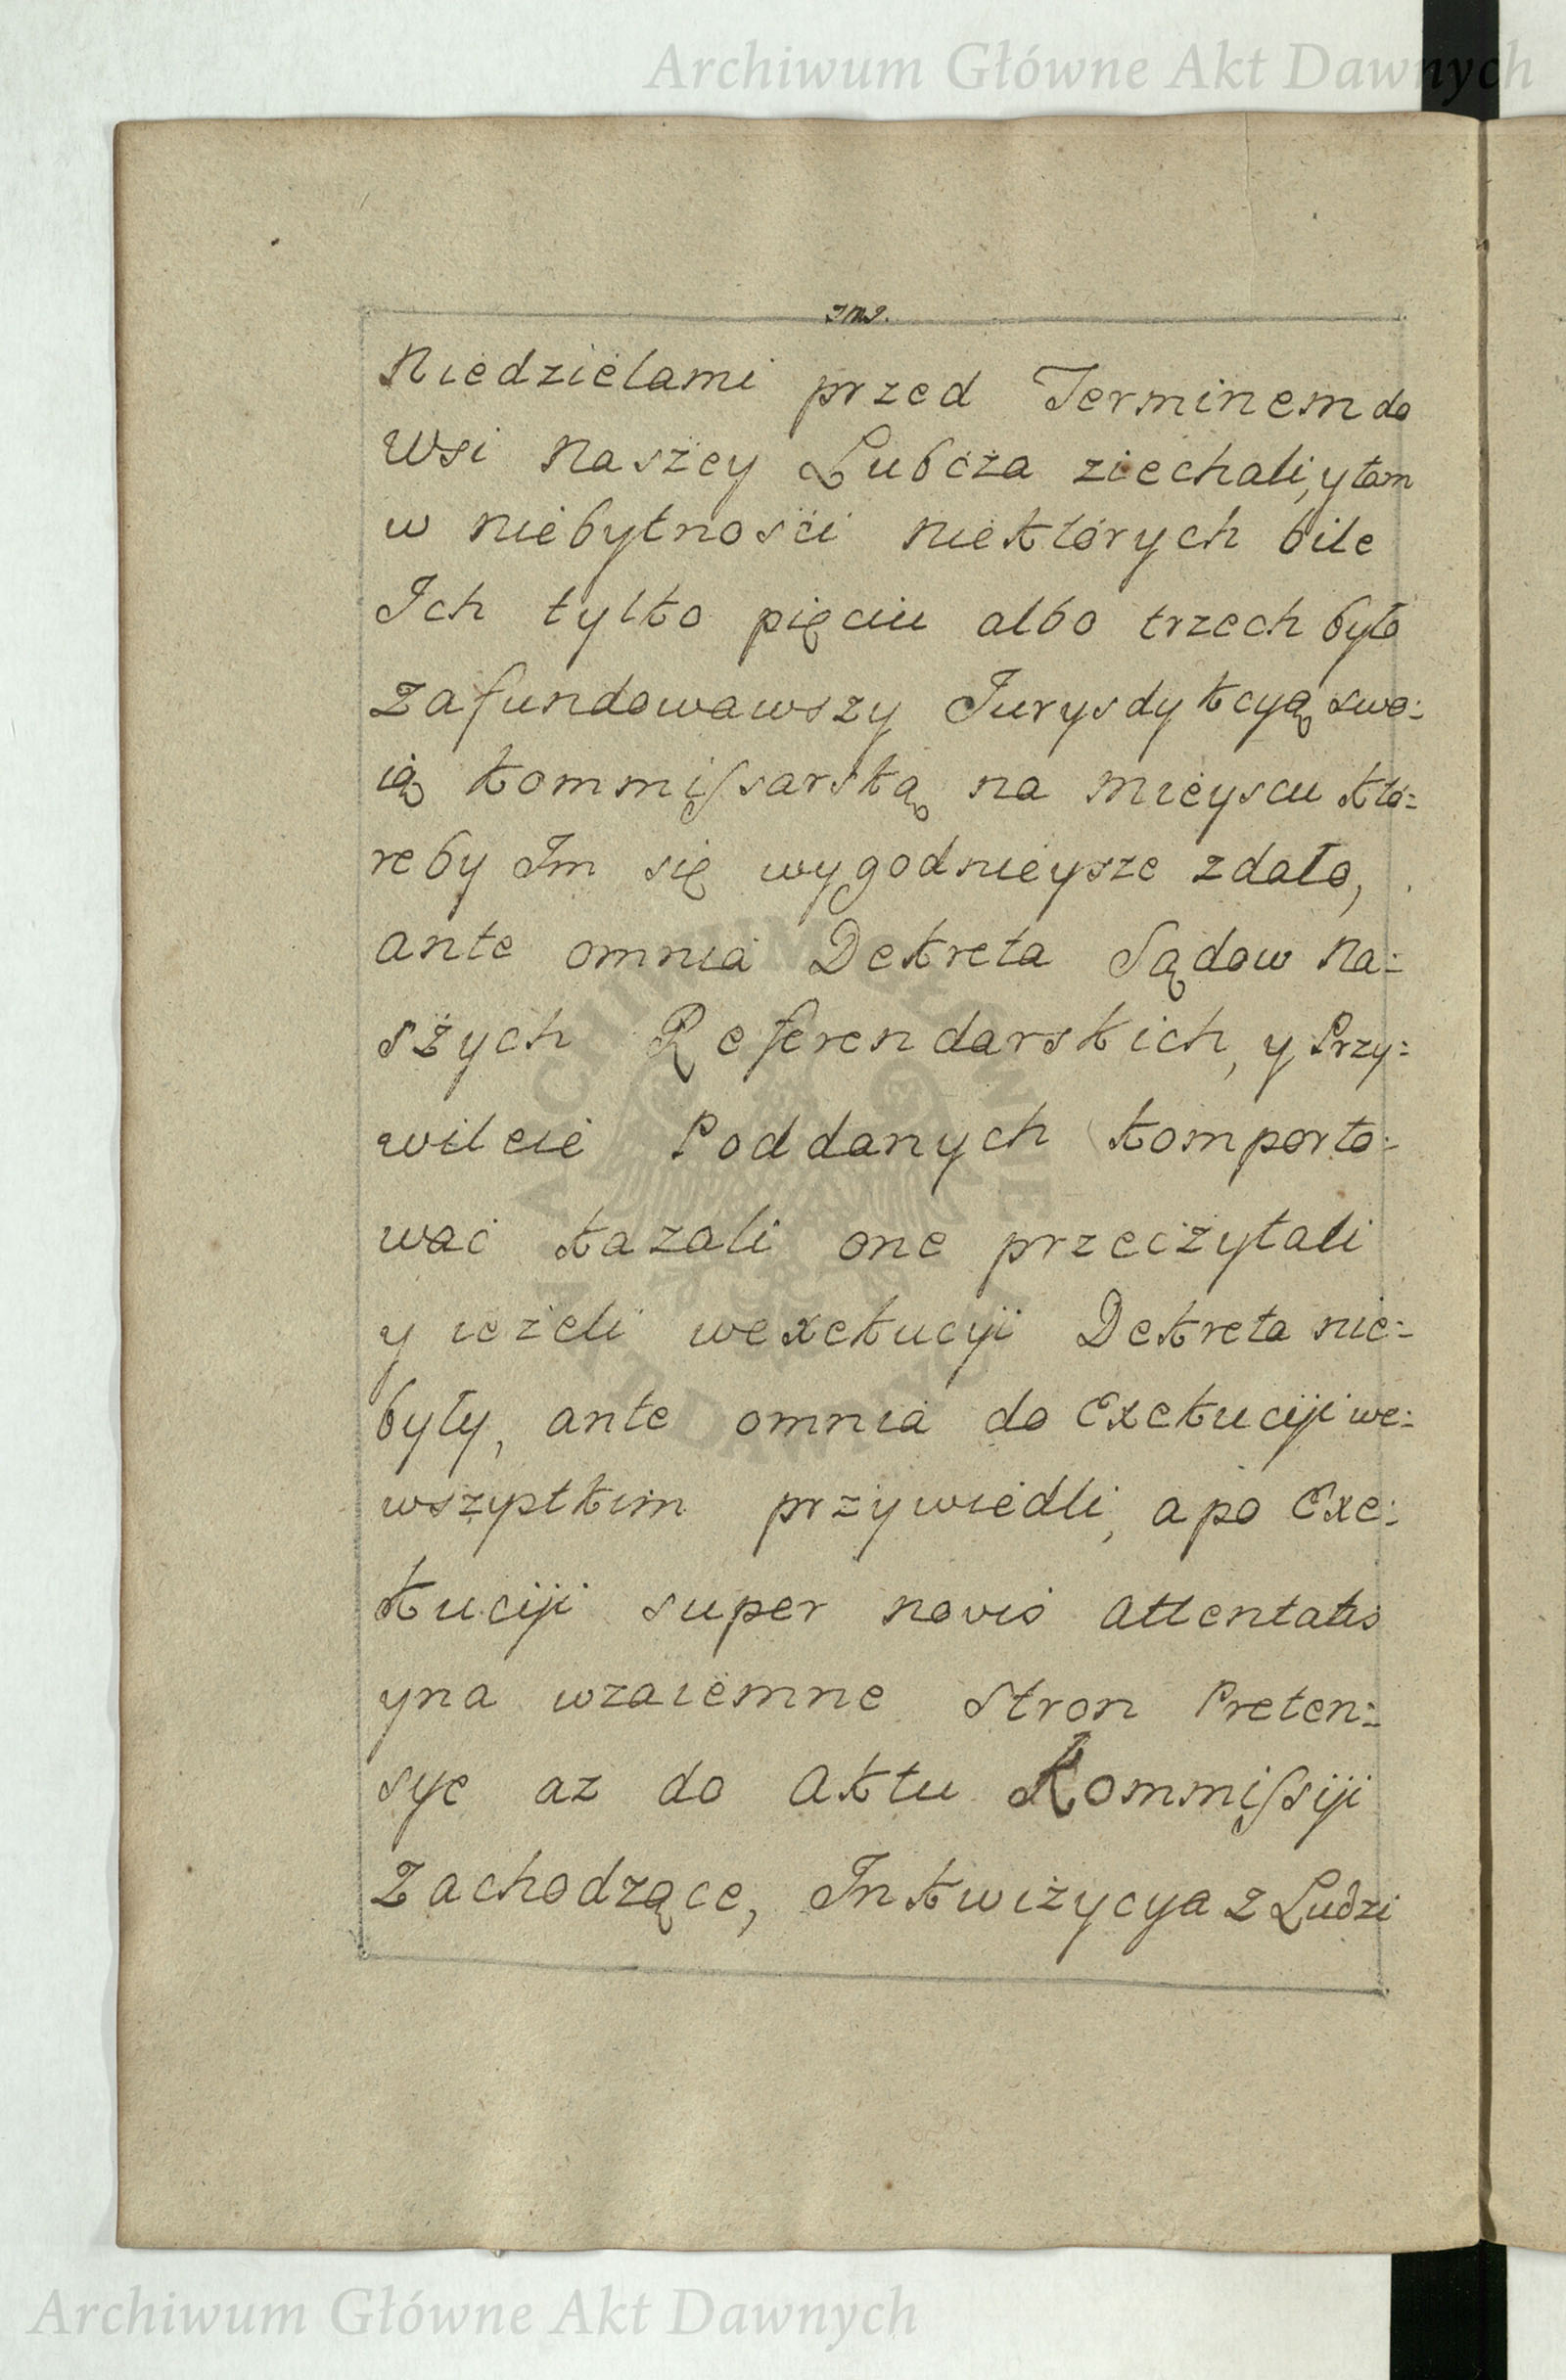 Archiwum Główne Akt Dawnych
Niedzielami przed Terminem do
Wsi Naszey Lubcza ziechali, y tam
w niebytnosci niektórych bile
Ich tylko pięciu albo trzech było
Zafundowawszy Jurysdykcyą swo:
ią kommissarską na mieyscu któ:
re by Im się wygodnieysze zdało,
ante omnia Dekreta Sądow Na:
szych Referendarskich, y Przy:
wileie Poddanych komporto:
wać kazali one przeczytali
y ieżeli wexekucyi Dekreta nie:
były, ante omnia do Exekucyi we:
wszystkim przywiedli, a po Exe:
kucyi super novis attentatis
yna wzaiemne Stron Preten:
sye az do Aktu Kommissyi
Zachodzące, Inkwizycya z Ludzi
Archiwum Główne Akt Dawnych